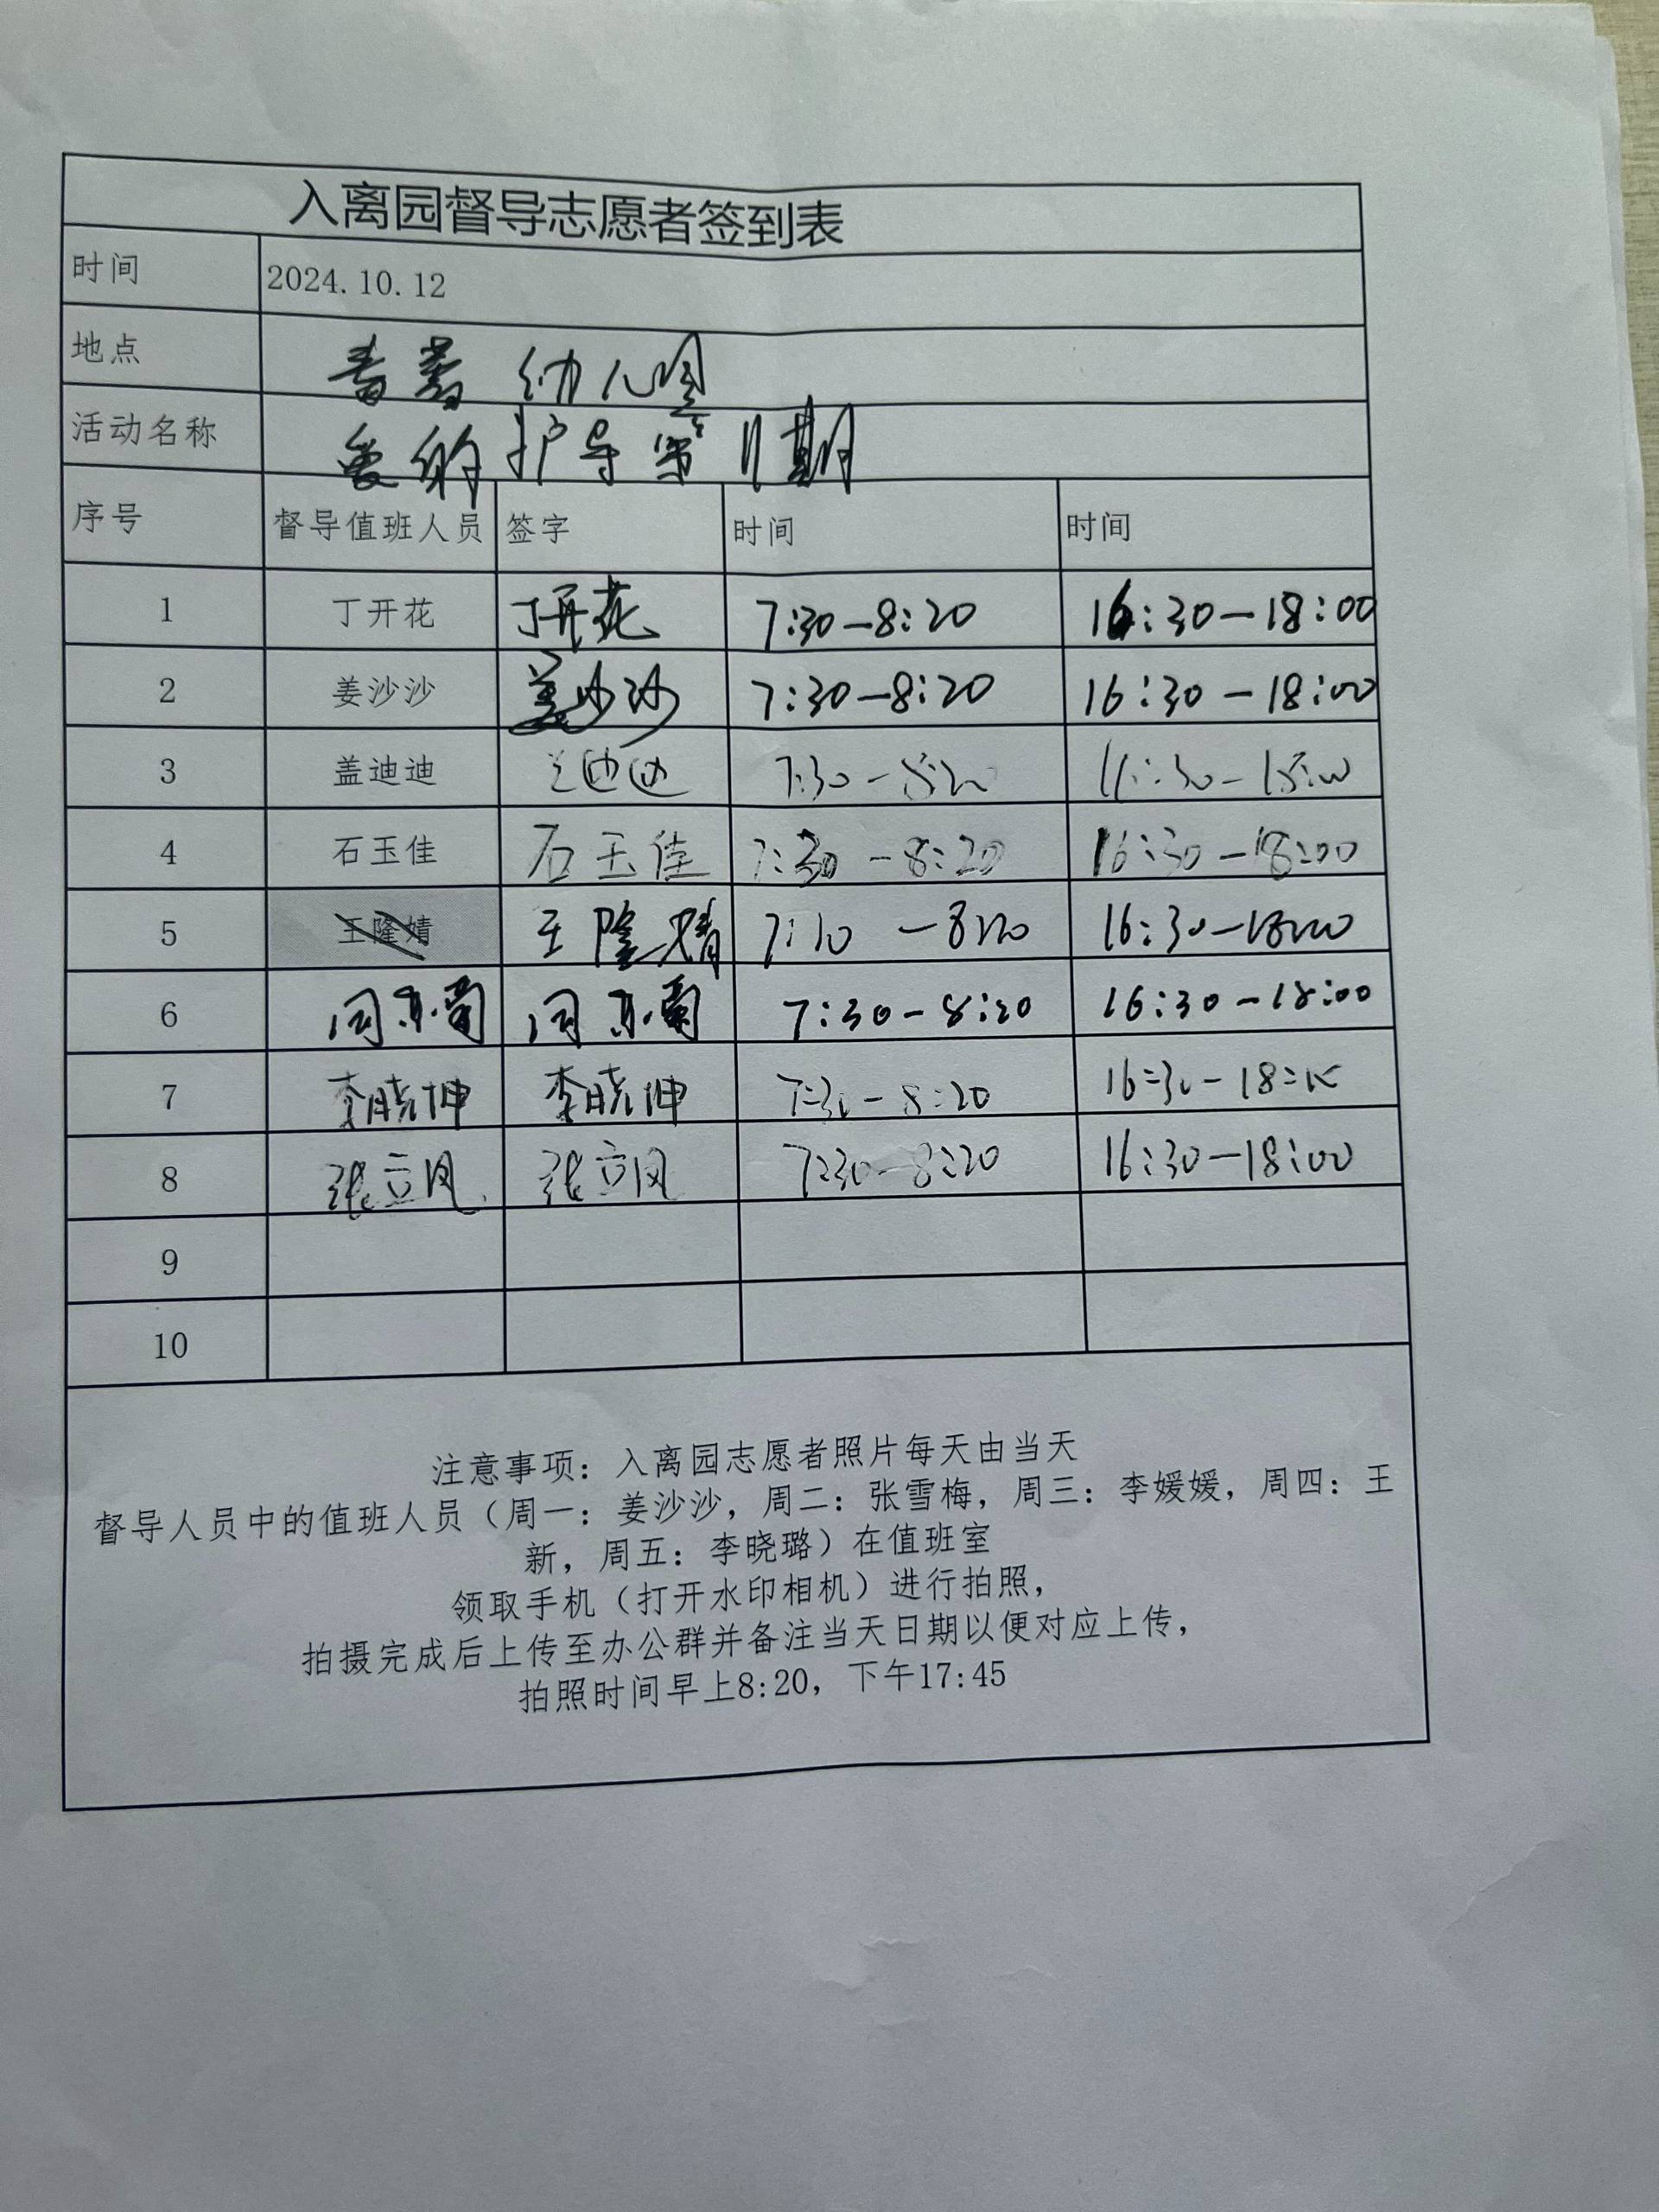 入离园督导志愿者签到表
时间 2024.10.12
地点 幼儿园
活动名称 爱的护导第11期
序号 督导值班人员 签字 时间 时间
1 丁开花 丁开花 7:30-8:20 16:30-18:00
2 姜沙沙 姜沙沙 7:30-8:20 16:30-18:00
3 盖迪迪 盖迪迪 7:30-8:20 16:30-18:00
4 石玉佳 石玉佳 7:30-8:20 16:30-18:00
5 王隆婧 王隆婧 7:10-8:20 16:30-18:00
6 7:30-8:20 16:30-18:00
7 李晓坤 李晓坤 7:30-8:20 16:30-18:00
8 张立风 张立风 7:30-8:20 16:30-18:00
9
10
注意事项：入离园志愿者照片每天由当天
督导人员中的值班人员（周一：姜沙沙，周二：张雪梅，周三：李媛媛，周四：王
新，周五：李晓璐）在值班室
领取手机（打开水印相机）进行拍照，
拍摄完成后上传至办公群并备注当天日期以便对应上传，
拍照时间早上8:20，下午17:45